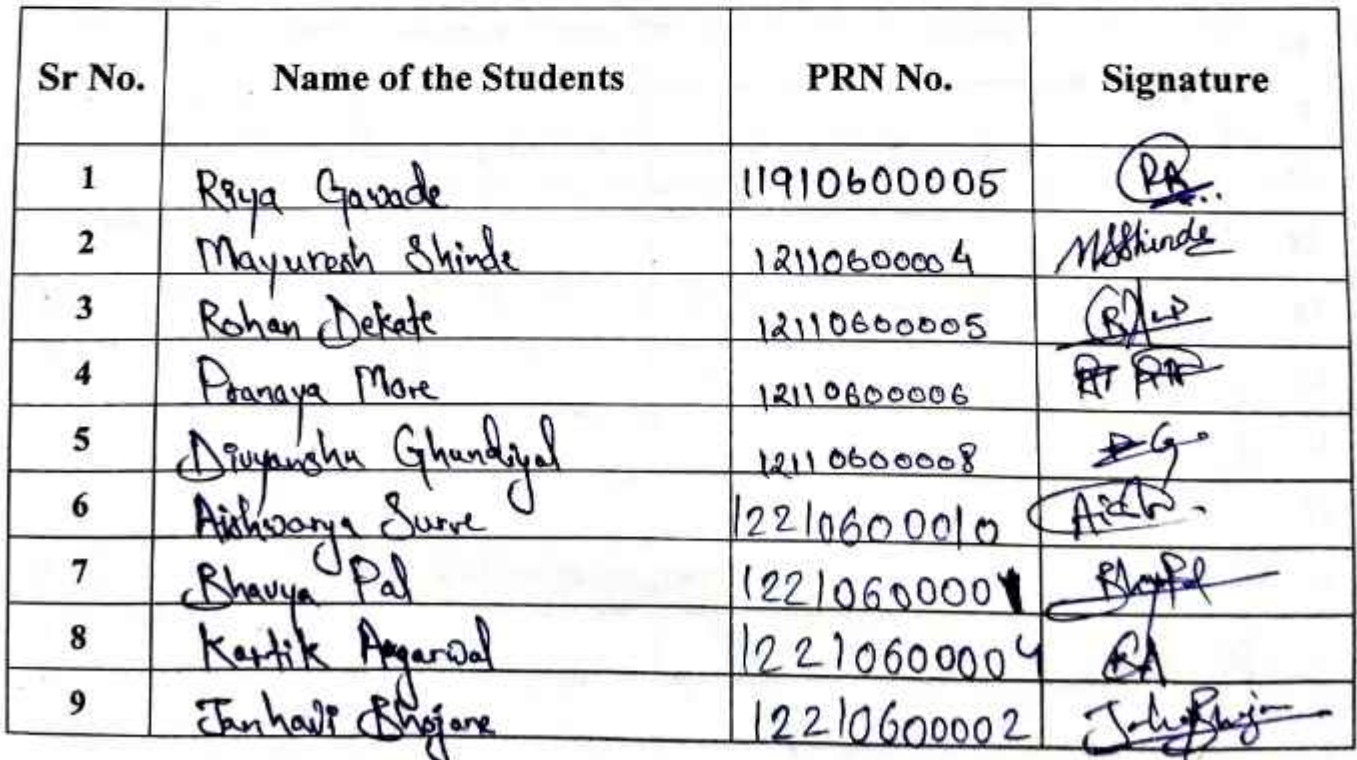 Sr No. Name of the Students PRN No. Signature
1 Riya Gawade 11910600005
2 Mayuresh Shinde 12110600004 MSShinde
3 Rohan Dekate 12110600005
4 Pranaya More 12110600006
5 Divyanshu Ghundiyal 12110600008
6 Aishwarya Surve 12210600010
7 Bhavya Pal 12210600001
8 Kartik Agarwal 12210600004 KA
9 Janhavi Bhojane 12210600002